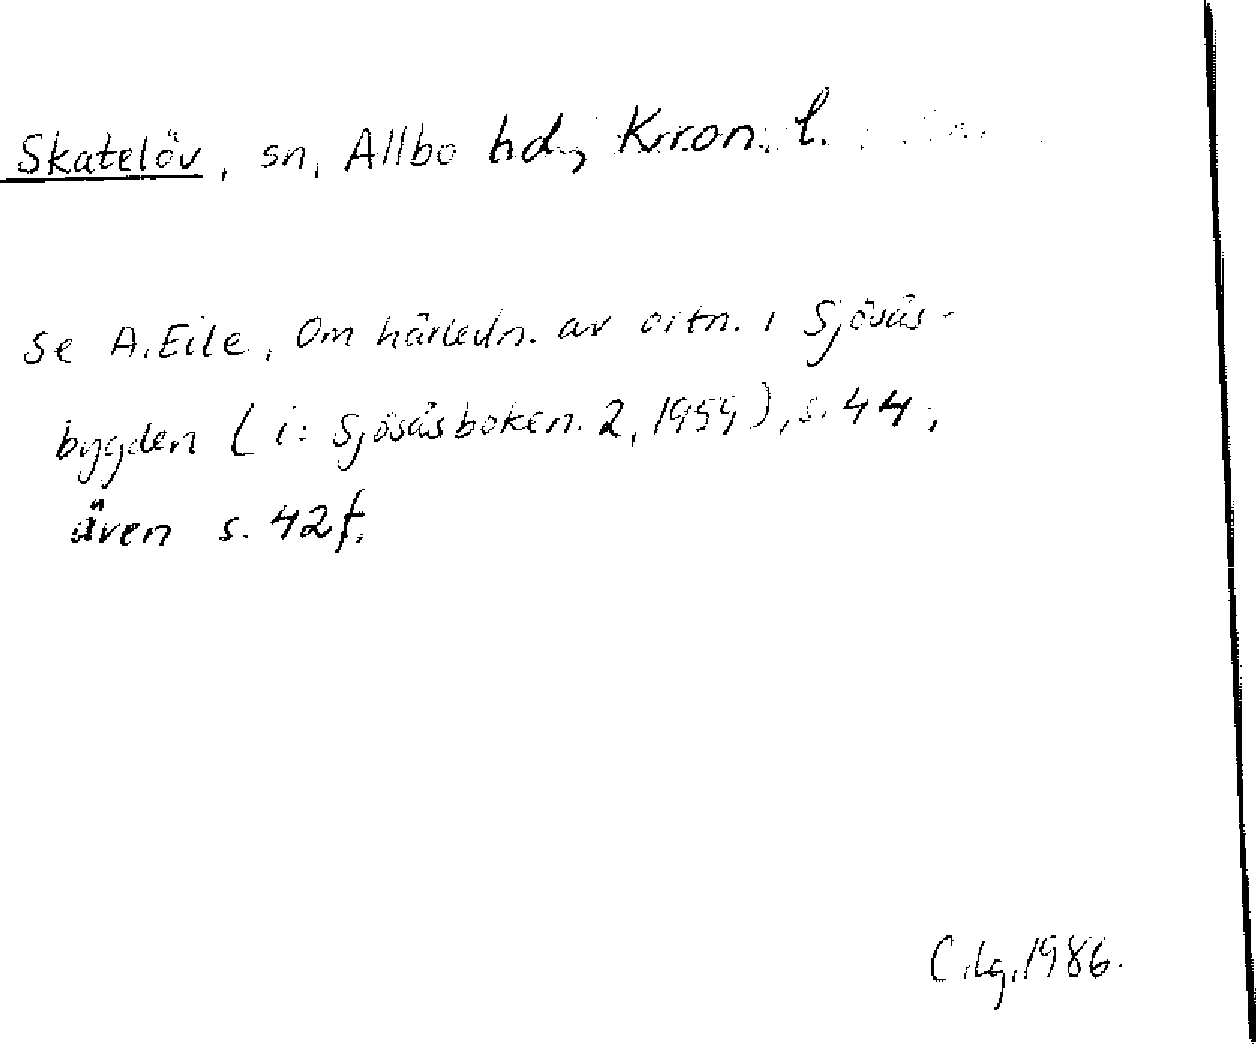 Skatelöv, sn, Allbo hd, Kron. l.
se A. Eile, Om härledn. av ortn. i Sjösås-
bygden (i: Sjösåsboken. 2, 1959), s. 44,
även s. 42 f.
1986.